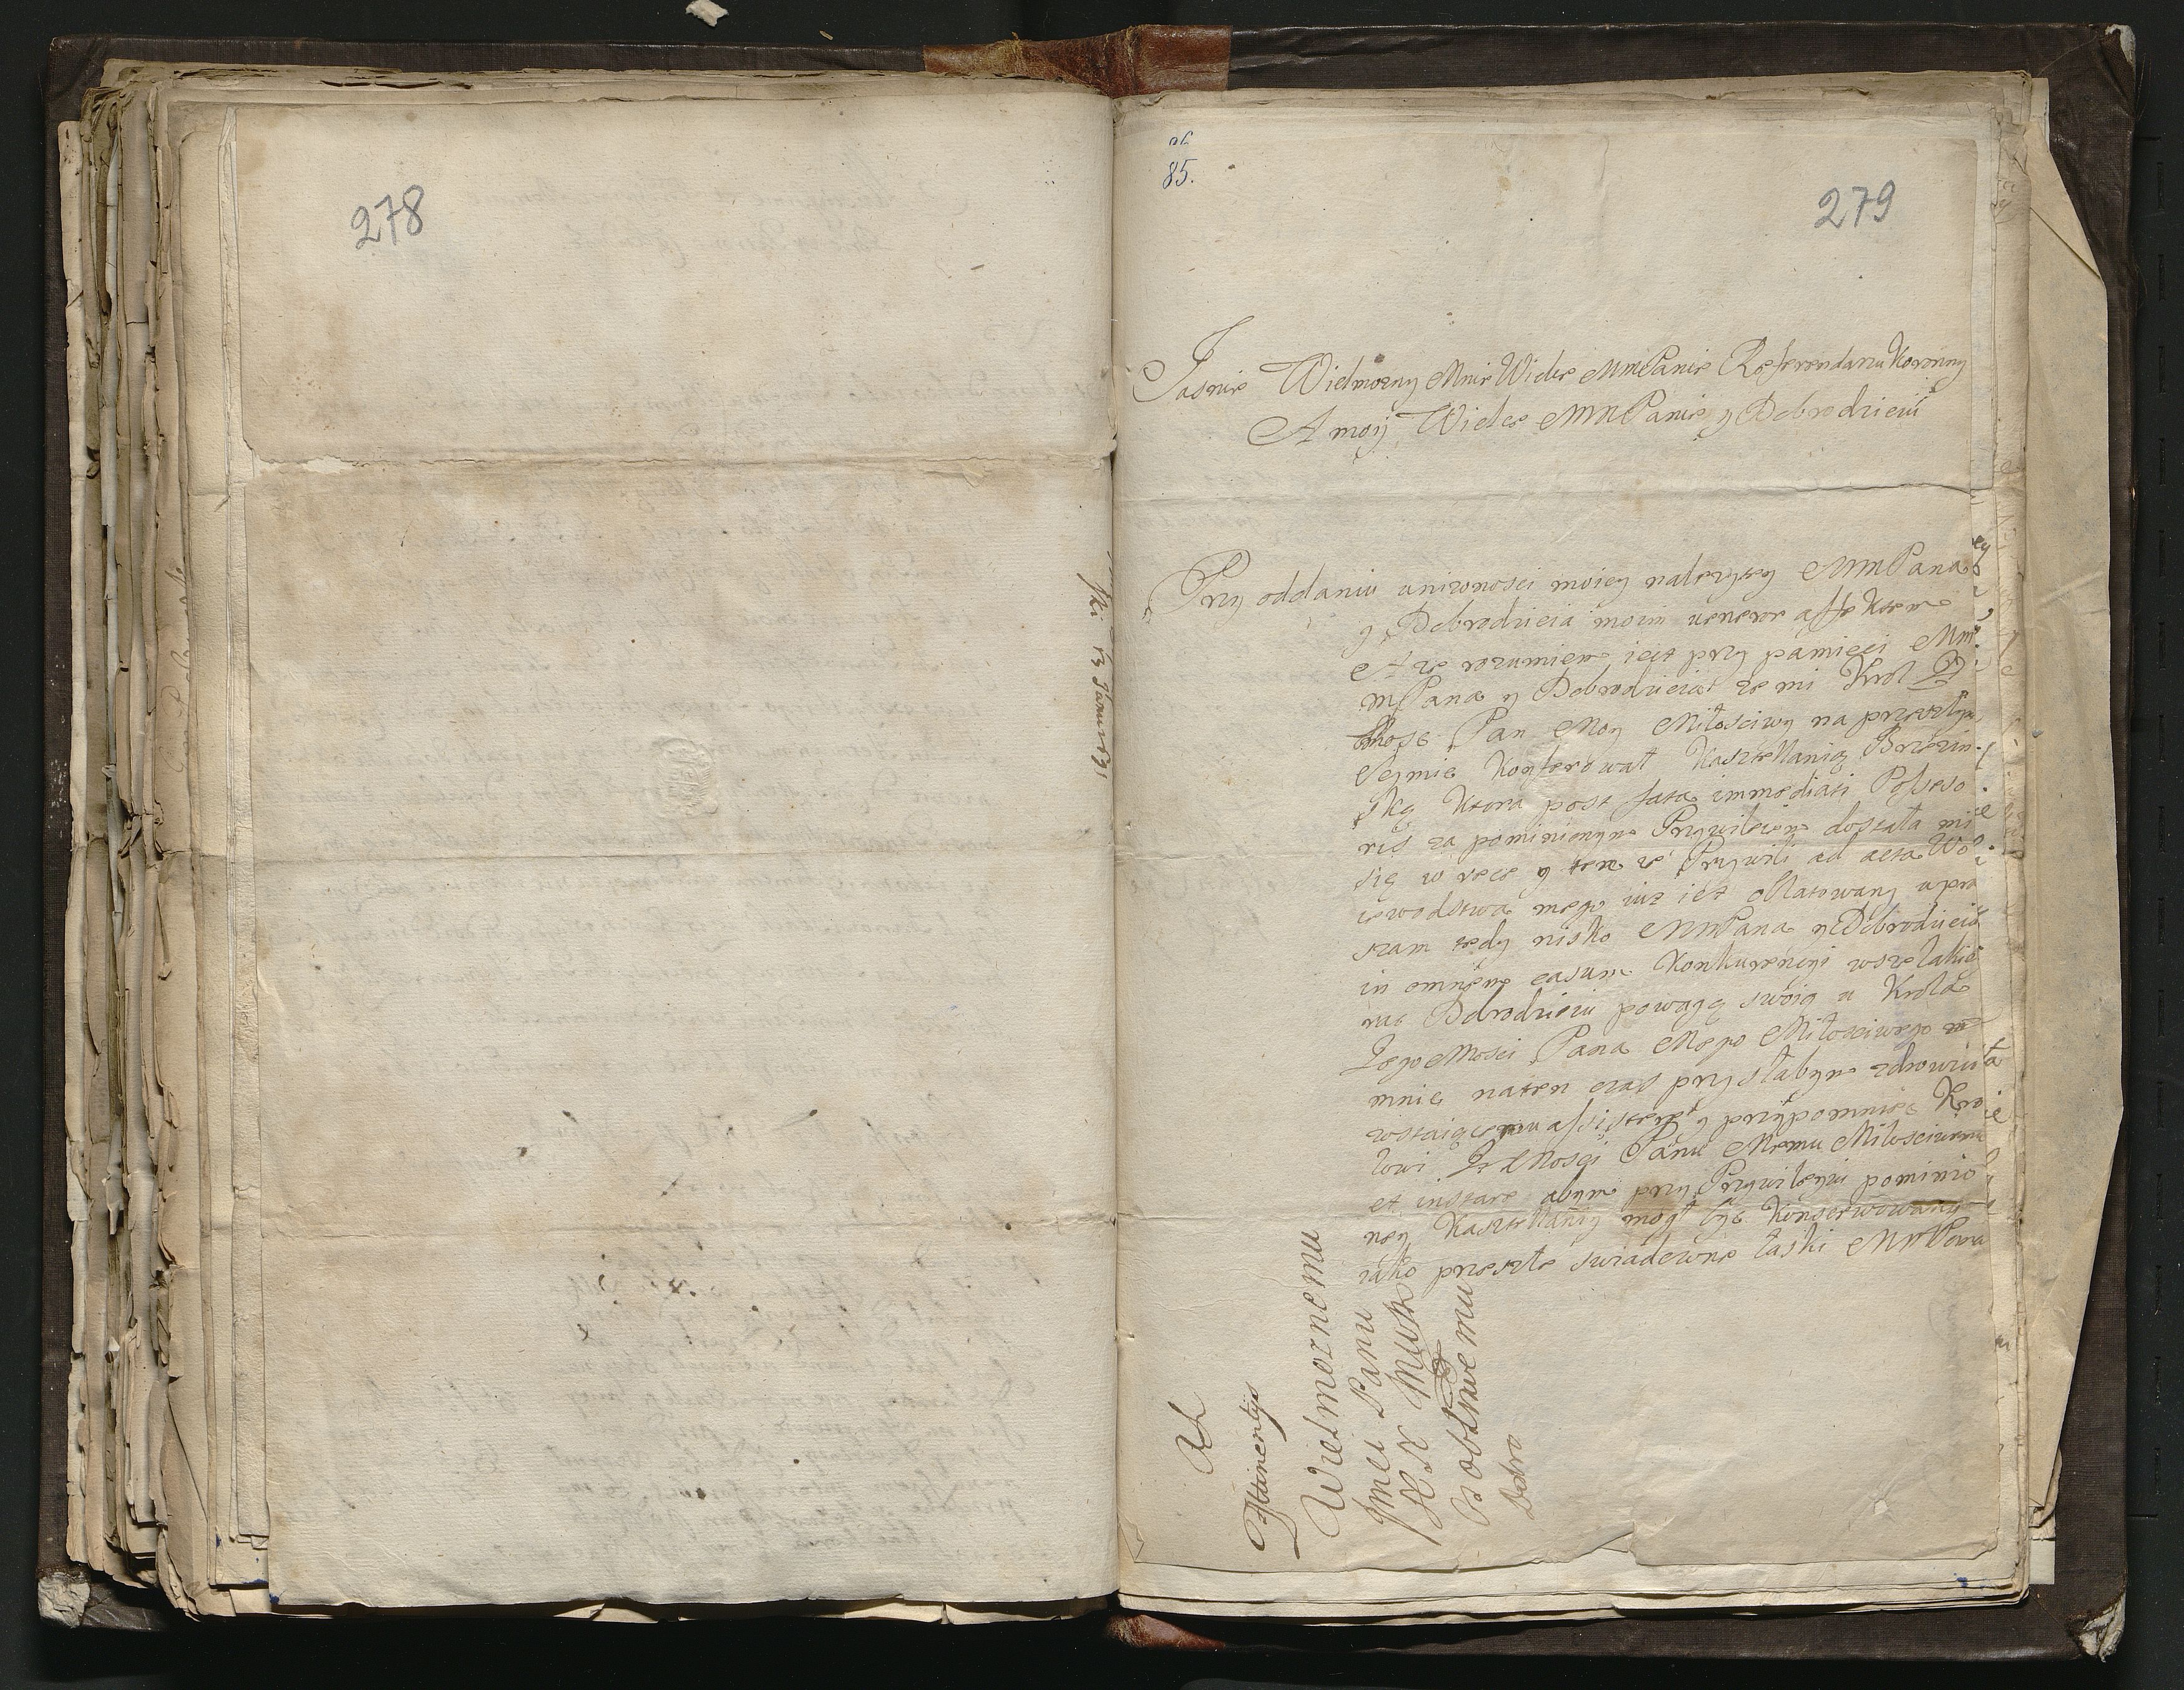 278
85.
279
Jasnie Wielmozny Mnie Wielce MmPanie Referendarzu Koronny
A moy Wielce MMPanie y Dobrodzieiu
Przy oddaniu unizonosci moiey nalezytey MMPana
y Dobrodzieia moim veneror affektem
A ze rozumiem iest przy pamieci Mm
mPana y Dobrodzieia ze mi Krol
Mosc Pan Moy Miłosciwy na przeszlym
Seymie Konferował Kasztellanią Brzezin
ską Ktora post fata immediati Possesso
ris za pominienym Przywileiem dostała mi
się w rece y ten ze Przywili ad acta Wo
iewodztwa mego iuz iest oblatowany upra
szam tedy nisko MMPana y Dobrodzieia
in omnem casum Konkurencyi wszelakie
me Dobrodzieiu powagą swoią u Krola
Jego Mosci Pana Mego Miłosciwego
mnie naten czas przy słabym zdrowiu
zostaiącemu assistere y przypomniec Kro
lowi Je Mosci Panu Memu Miłosciwemu
et instare abym przy Przywileyu pominio
ney Kasztellaniy mogł byc Konserwowany
iako przeszłe swiadczone łaski MMPana
Attinentijs
Wielmoznemu
Jmci Panu
Dobro